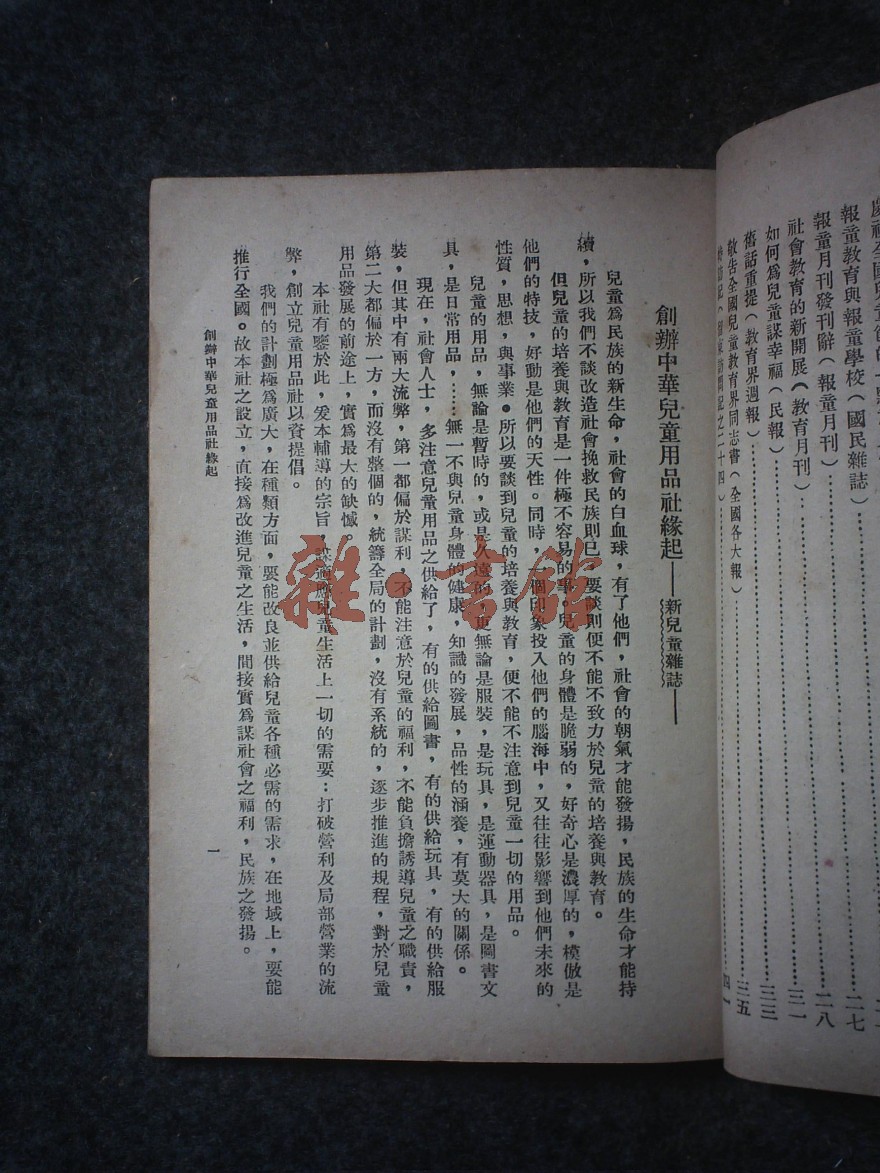 報童教育與報童學校(國民雜誌)……二七
報童月刊發刊辭(報童月刊)……二八
社會教育的新開展(教育月刊)……三一
如何爲兒童謀幸福(民報)……三三
舊話重提(教育界週報)……三五
敬告全國兒童教育界同志書(全國各大報)
創辦中華兒童用品社緣起——新兒童雜誌——
兒童爲民族的新生命,社會的白血球,有了他們,社會的朝氣才能發揚,民族的生命才能持
續,所以我們不談改造社會挽救民族則已,要談則便不能不致力於兒童的培養與教育。
但兒童的培養與教育是一件極不容易的事。兒童的身體是脆弱的,好奇心是濃厚的,模倣是
他們的特技,好動是他們的天性。同時,一個印象投入他們的腦海中,又往往影響到他們未來的
性質,思想,與事業。所以要談到兒童的培養與教育,便不能不注意到兒童一切的用品。
兒童的用品,無論是暫時的,或是久遠的,更無論是服裝,是玩具,是運動器具,是圖書文
具,是日常用品,……無一不與兒童身體的健康,知識的發展,品性的涵養,有莫大的關係。
現在,社會人士,多注意兒童用品之供給了,有的供給圖書,有的供給玩具,有的供給服
裝,但其中有兩大流弊,第一都偏於謀利,不能注意於兒童的福利,不能負擔誘導兒童之職責,
第二大都偏於一方,而沒有整個的,統籌全局的計劃,沒有系統的,逐步推進的規程,對於兒童
用品發展的前途上,實爲最大的缺憾。
本社有鑒於此,爰本輔導的宗旨,謀適應兒童生活上一切的需要:打破營利及局部營業的流
弊,創立兒童用品社以資提倡。
我們的計劃極爲廣大,在種類方面,要能改良並供給兒童各種必需的需求,在地域上,要能
推行全國。故本社之設立,直接爲改進兒童之生活,間接實爲謀社會之福利,民族之發揚。
創辦中華兒童用品社緣起
一
雜·書館